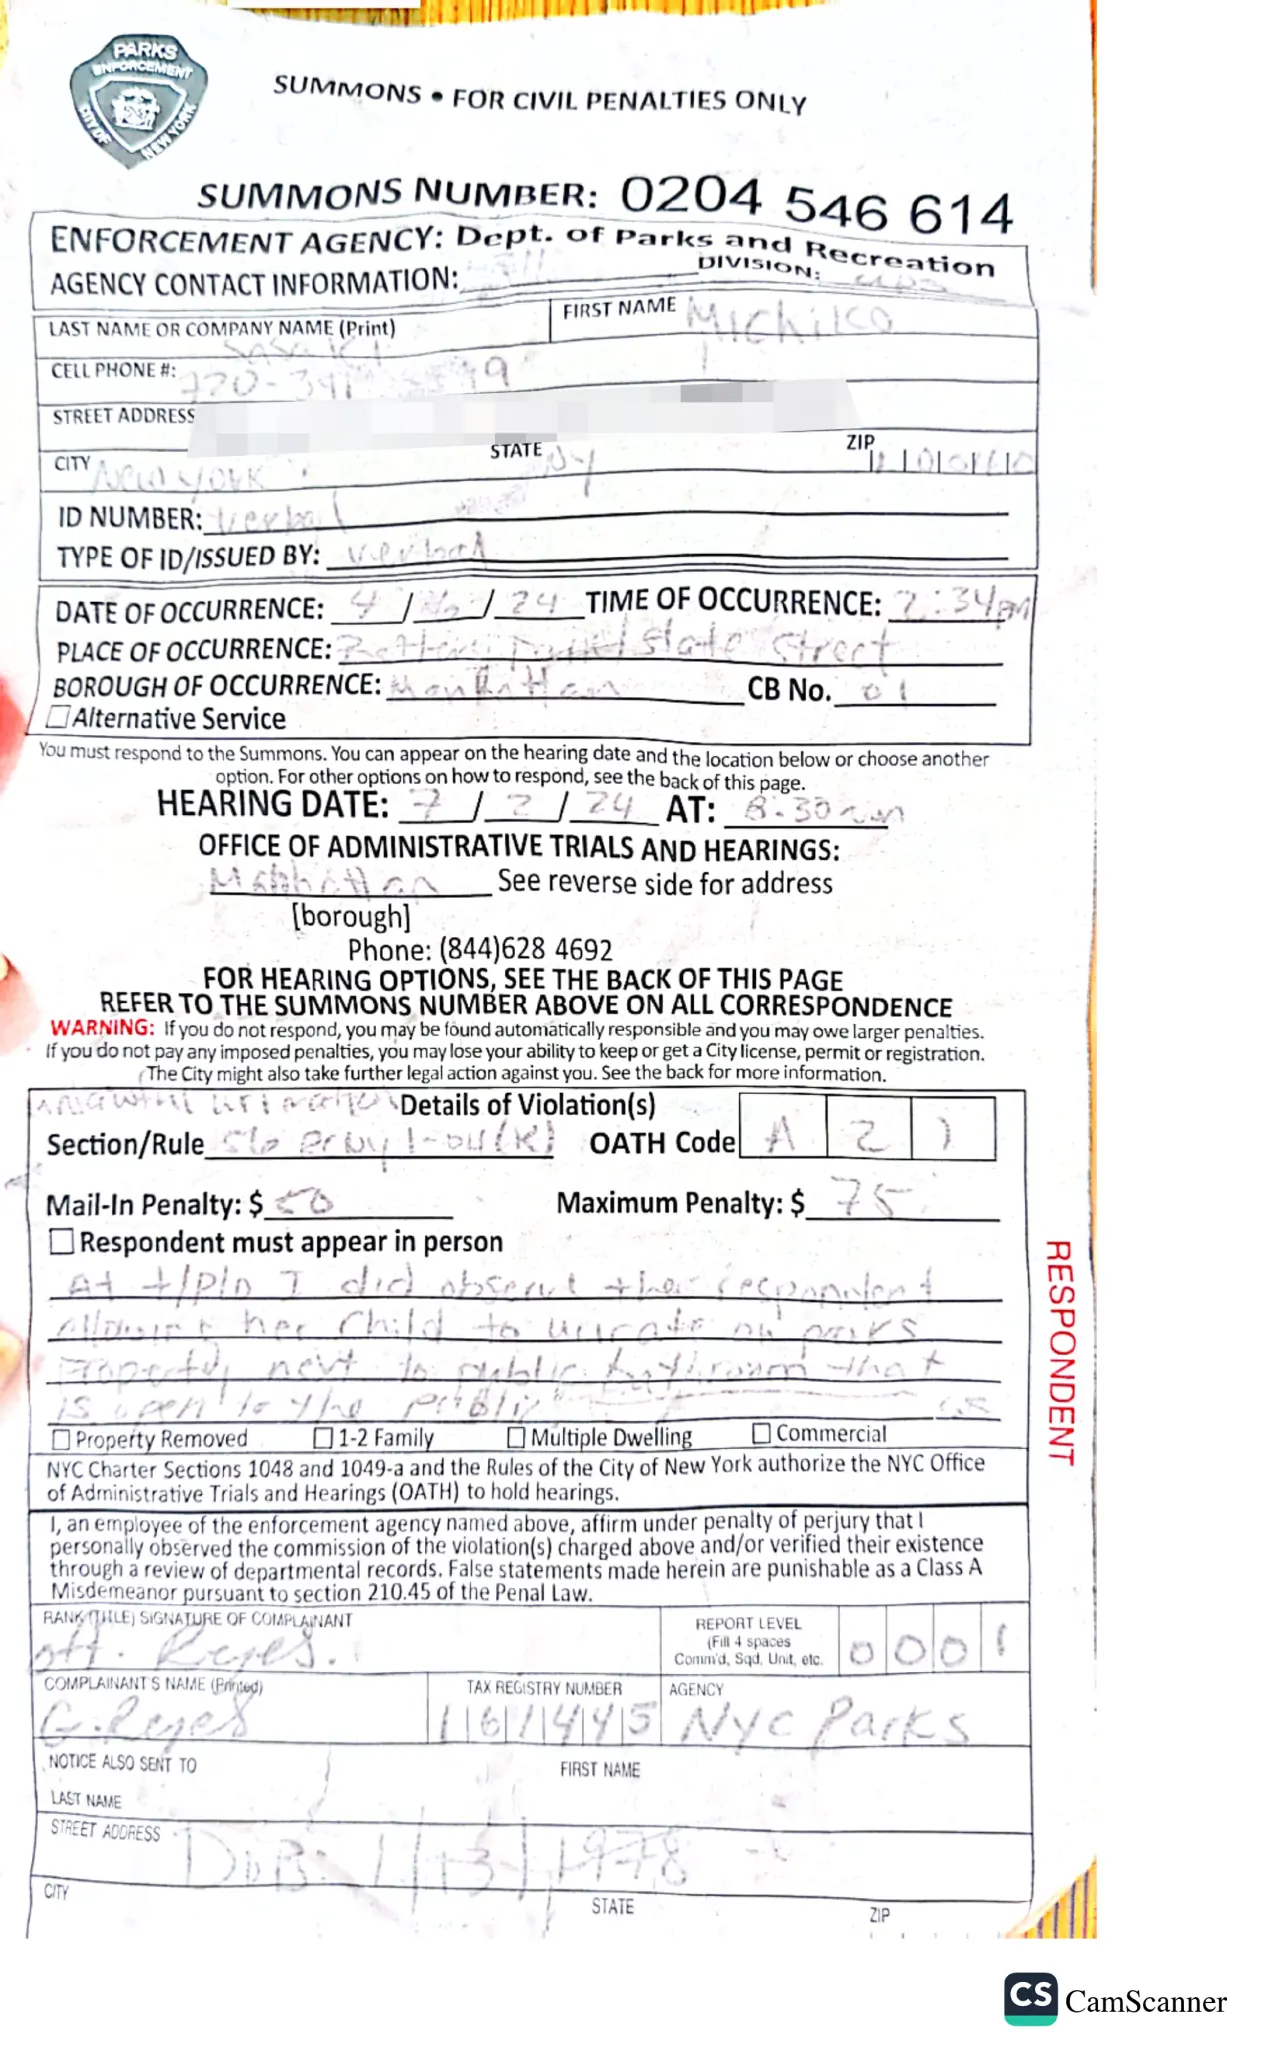 PARKS
ENFORCEMENT
CITY OF
NEW YORK
SUMMONS • FOR CIVIL PENALTIES ONLY
SUMMONS NUMBER: 0204 546 614
ENFORCEMENT AGENCY: Dept. of Parks and Recreation
AGENCY CONTACT INFORMATION: 311 DIVISION:
LAST NAME OR COMPANY NAME (Print) Sasaki FIRST NAME Michiko
CELL PHONE #: 720-
STREET ADDRESS
CITY New York STATE NY ZIP
ID NUMBER: verbal
TYPE OF ID/ISSUED BY: verbal
DATE OF OCCURRENCE: 4 / / 24 TIME OF OCCURRENCE: 2:34pm
PLACE OF OCCURRENCE: State Street
BOROUGH OF OCCURRENCE: Manhattan CB No. 01
Alternative Service
You must respond to the Summons. You can appear on the hearing date and the location below or choose another
option. For other options on how to respond, see the back of this page.
HEARING DATE: 7 / 2 / 24 AT: 8:30am
OFFICE OF ADMINISTRATIVE TRIALS AND HEARINGS:
Manhattan See reverse side for address
[borough]
Phone: (844)628 4692
FOR HEARING OPTIONS, SEE THE BACK OF THIS PAGE
REFER TO THE SUMMONS NUMBER ABOVE ON ALL CORRESPONDENCE
WARNING: If you do not respond, you may be found automatically responsible and you may owe larger penalties.
If you do not pay any imposed penalties, you may lose your ability to keep or get a City license, permit or registration.
The City might also take further legal action against you. See the back for more information.
Details of Violation(s)
Section/Rule 56 RCNY 1-04(K) OATH Code A 2 1
Mail-In Penalty: $ 50 Maximum Penalty: $ 75
Respondent must appear in person
At t/p/o I did observe the respondent
allowing her child to urinate on parks
property next to public bathroom that
is open to the public
Property Removed 1-2 Family Multiple Dwelling Commercial
NYC Charter Sections 1048 and 1049-a and the Rules of the City of New York authorize the NYC Office
of Administrative Trials and Hearings (OATH) to hold hearings.
I, an employee of the enforcement agency named above, affirm under penalty of perjury that I
personally observed the commission of the violation(s) charged above and/or verified their existence
through a review of departmental records. False statements made herein are punishable as a Class A
Misdemeanor pursuant to section 210.45 of the Penal Law.
RANK (TITLE) SIGNATURE OF COMPLAINANT REPORT LEVEL
off. Reyes. (Fill 4 spaces 0 0 0 1
Comm'd, Sqd, Unit, etc.
COMPLAINANT S NAME (Printed) TAX REGISTRY NUMBER AGENCY
G. Reyes 1 6 1 4 4 5 NYC Parks
NOTICE ALSO SENT TO FIRST NAME
LAST NAME
STREET ADDRESS
DOB: 1/13/1978
CITY STATE ZIP
RESPONDENT
CS CamScanner